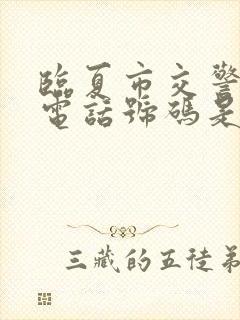 臨夏市交警
電話號碼是
三藏的五徒弟